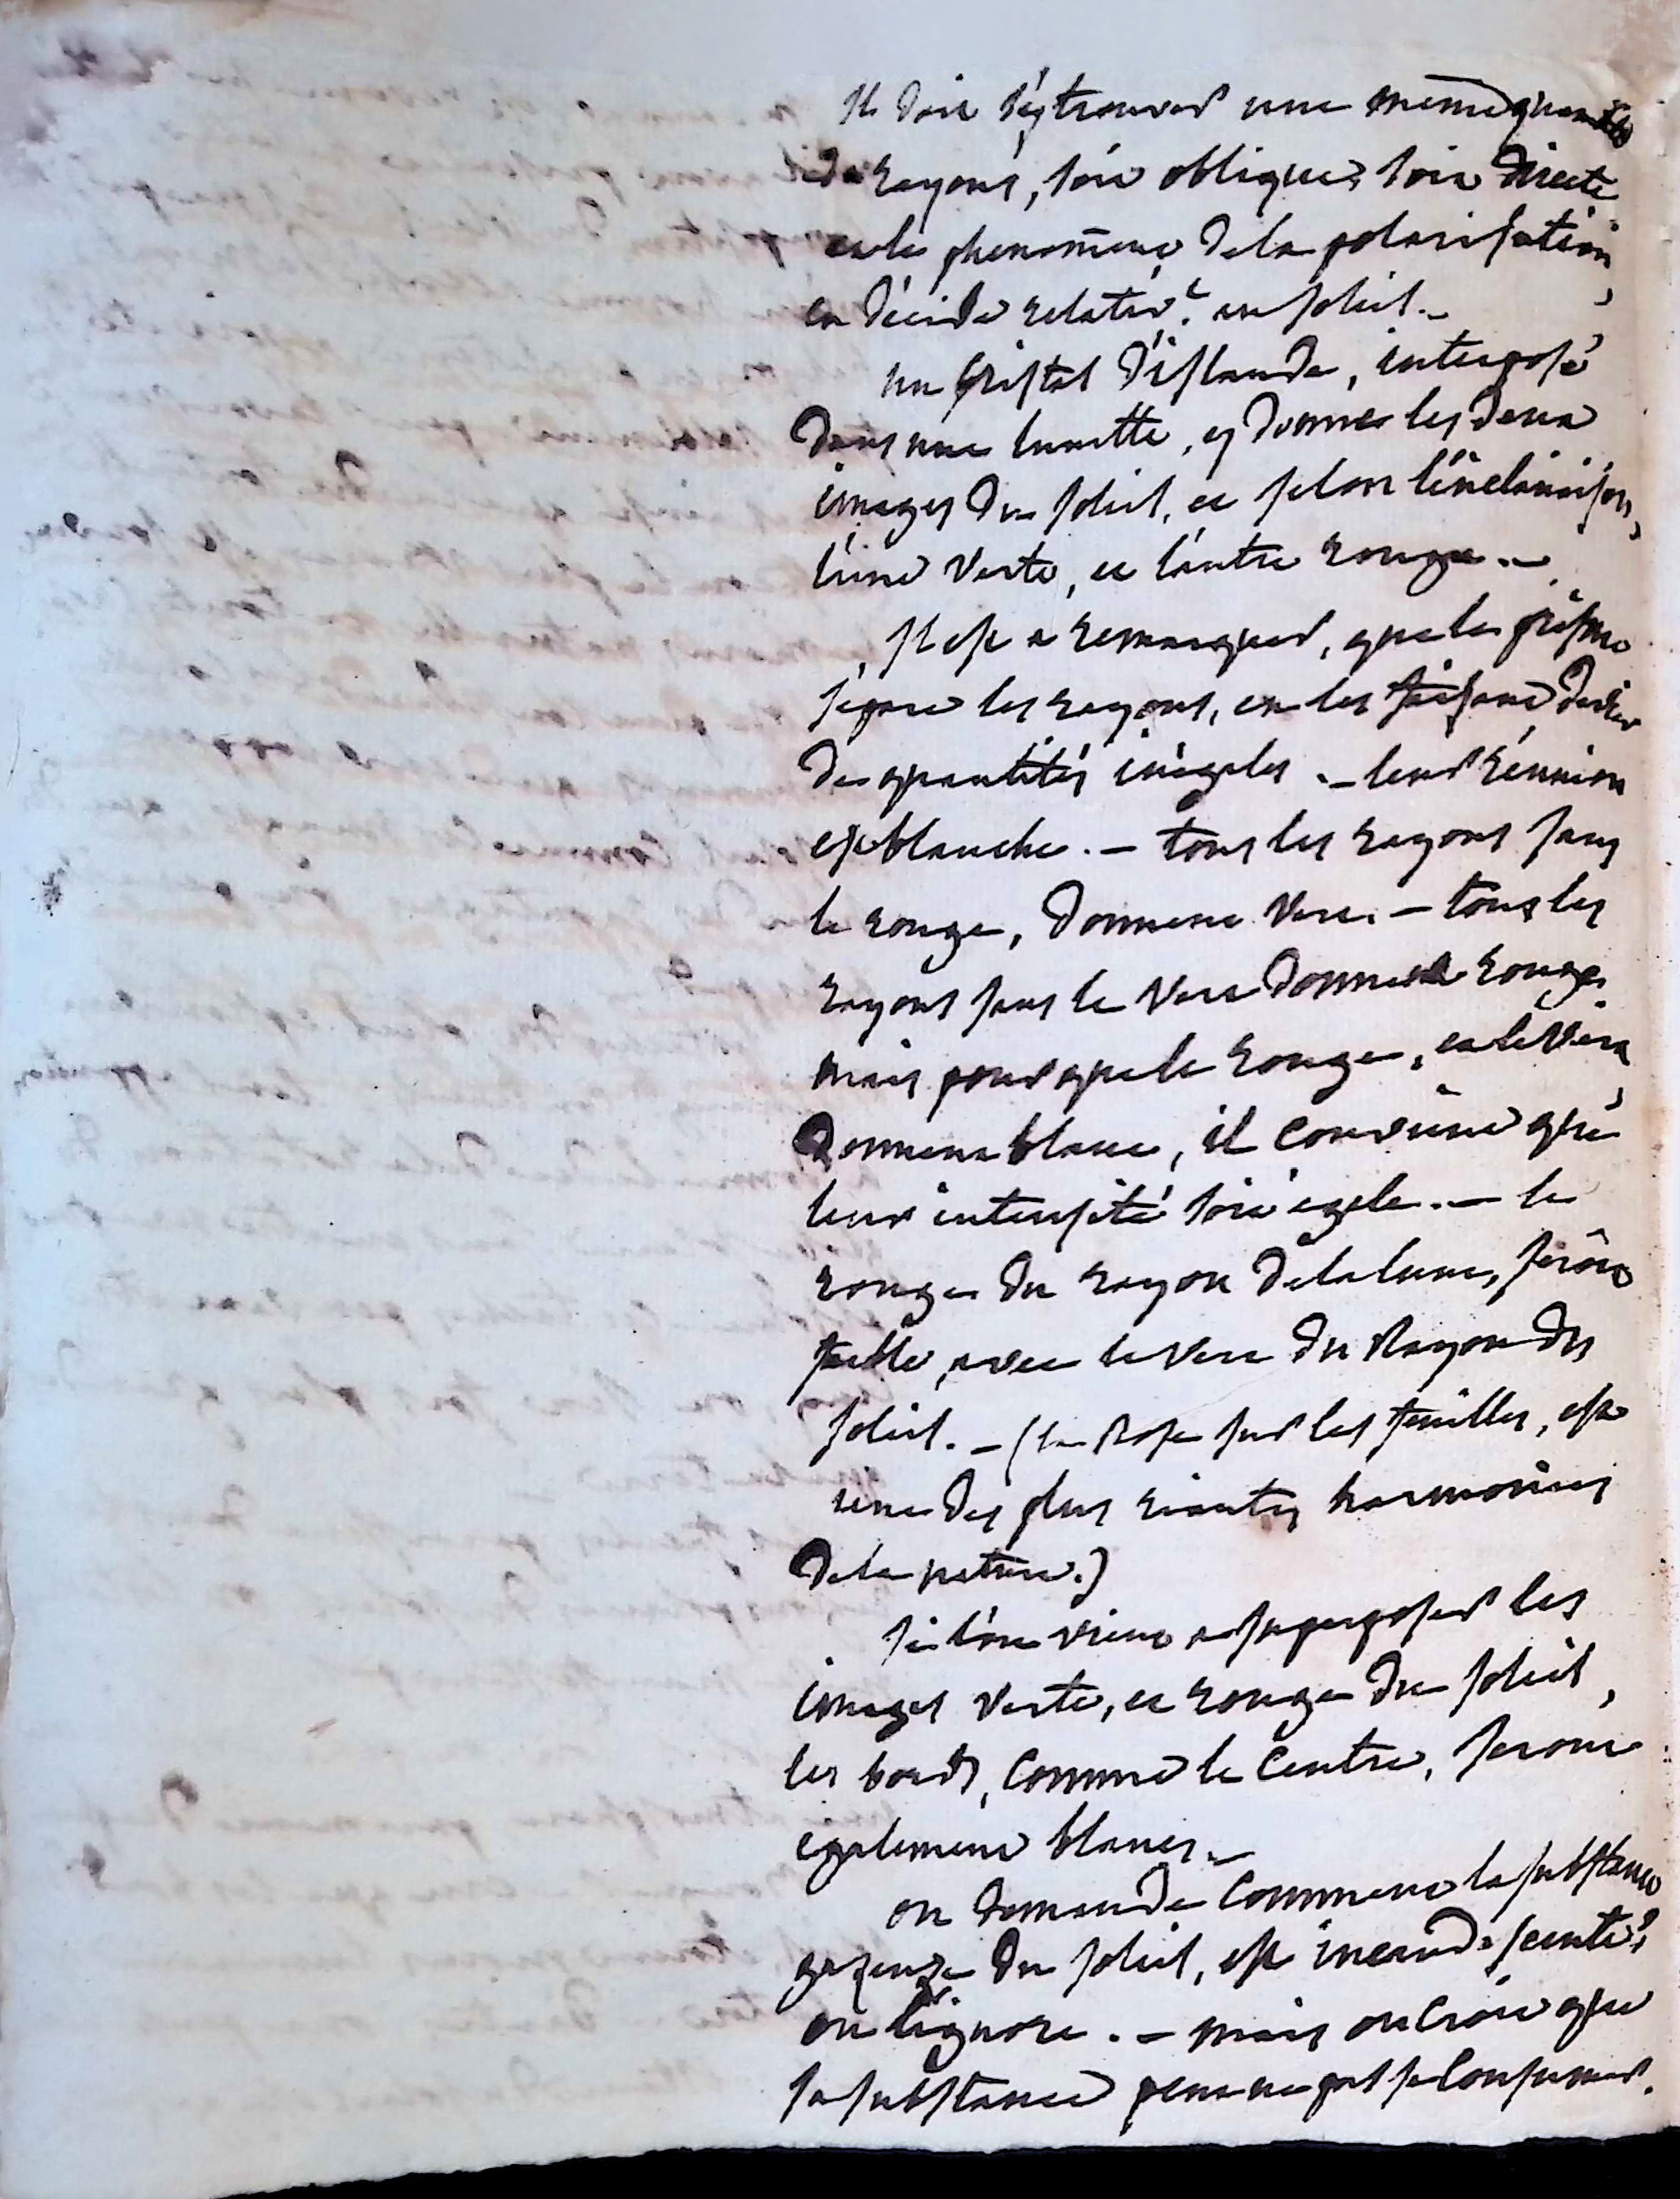 Il doit s'y trouver une même quantité
de rayons, soit obliques, soit directs
et le phenomene de la polarisation,
en décide relativt. au soleil. –
un cristal d'islande, interposé
dans une lunette, y donne les deux
images du soleil, et selon l'inclinaison,
l'une verte, et l'autre rouge. –
Il est a remarquer, que le prisme
separe les rayons, en les faisant devier
de quantités inégales. – leur réunion
est blanche. – tous les rayons sans
le rouge, donnent vert. – tous les
rayons sans le vert donnent rouge
mais pour que le rouge, et le vert,
donnent blanc, il convient que
leur intensité soit egale. – le
rouge du rayon de la lune, seroit
faible, avec le vert du Rayon du
soleil. – (la Rose sur les feuilles, est
une des plus riantes harmonies
de la nature.)
Si l'on vient a superposer les
images verte, et rouge du soleil,
les bords, comme le centre, seront
egalement blancs. –
on demande comment la substance
gazeuse du soleil, est incandescente?
on l'ignore. – mais on croit que
sa substance peut ne pas se consumer.